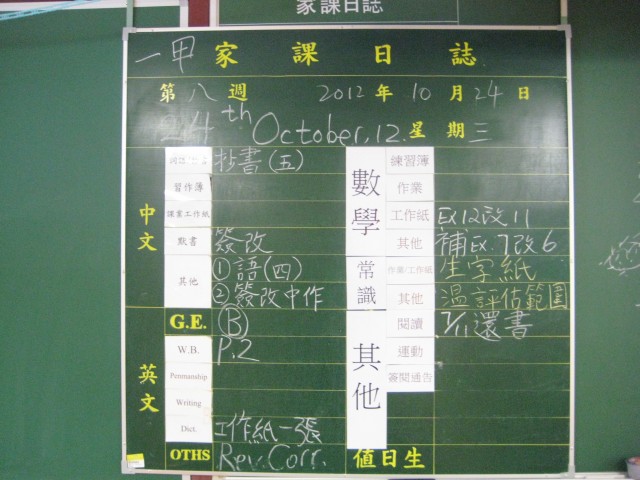 家課日誌
一甲 家課日誌
第八週 2012年10月24日
24th October, 12. 星期三
中文
抄書(五)
習作簿
課業工作紙
默書 簽改
其他 ①語(四)
②簽改中作
英文
G.E. Ⓑ
W.B. P.2
Penmanship
Writing
Dict. 工作紙一張
OTHS Rev. Corr.
數學
練習簿
作業
工作紙 Ex12改11
其他 補Ex.7改6
常識
作業/工作紙 生字紙
其他 溫評估範圍
其他
閱讀 7/11還書
運動
簽閱通告
值日生